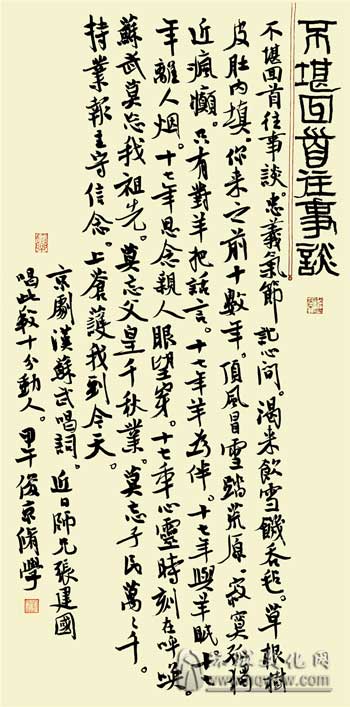 不堪回首往事談
不堪回首往事談。忠義氣節記心间。渴来飲雪饑吞毡。草根樹
皮肚内填。你来之前十数年。頂風冒雪踏荒原。寂寞孤獨
近瘋癲。只有對羊把話言。十七年羊為伴。十七年與羊眠。十七
年離人烟。十七年思念親人眼望穿。十七年心靈時刻在呼唤。
蘇武莫忘我祖先。莫忘父皇千秋業。莫忘子民萬萬千。
持業報主守信念。上蒼護我到今天。
京劇漢蘇武唱詞。近日師兄張建國
唱此段十分動人。甲午俊京脩學